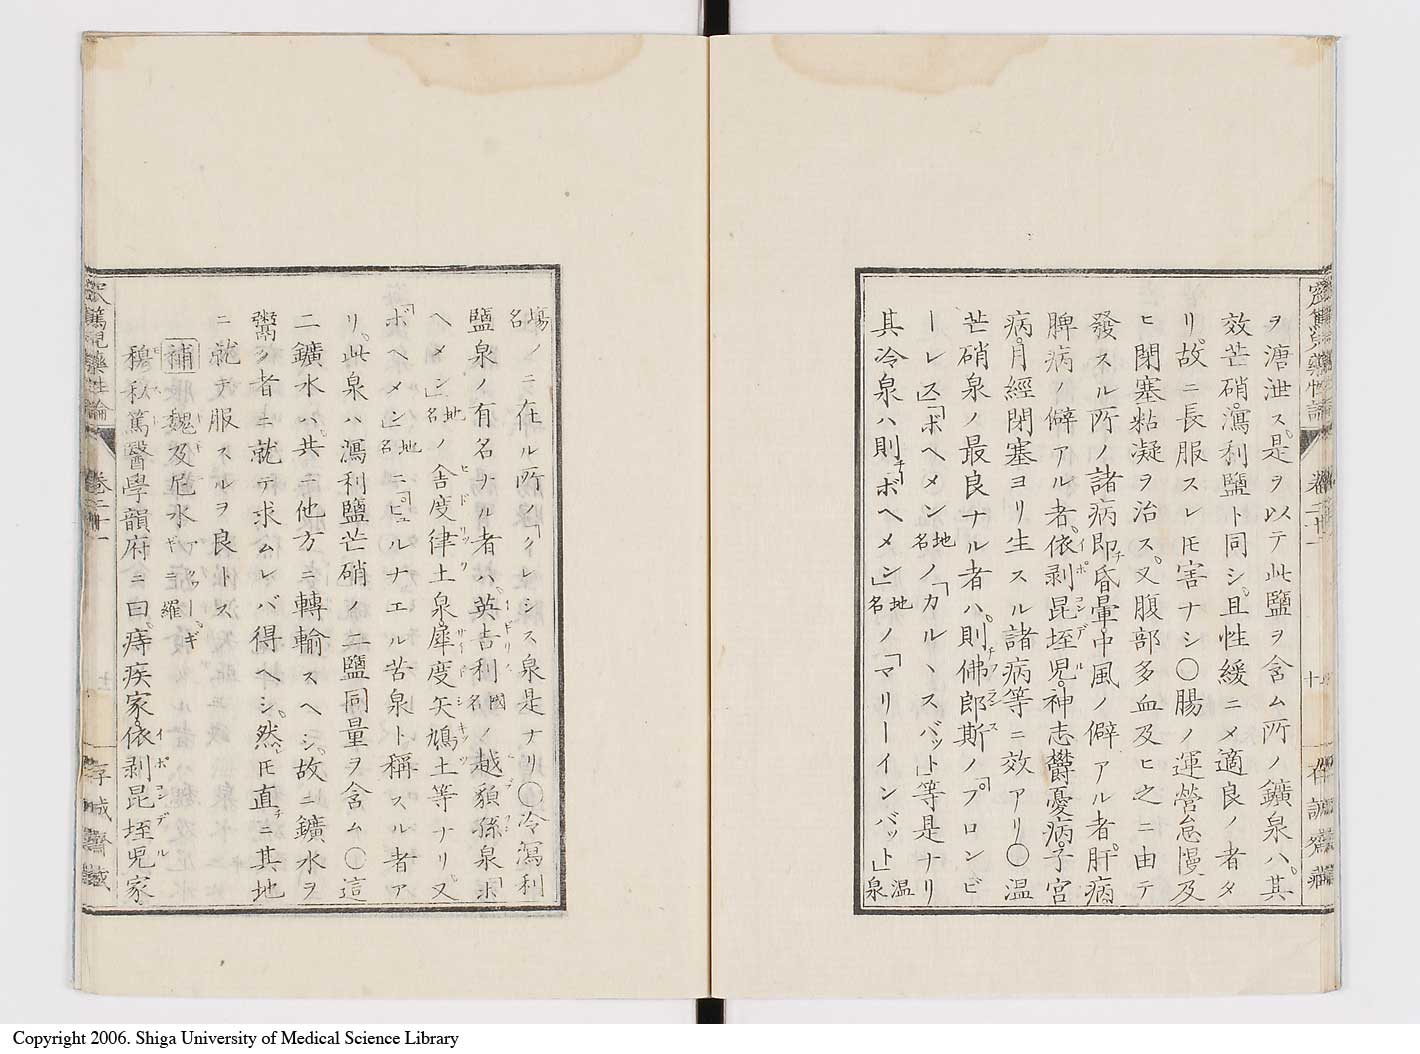 ヲ溏泄ス是ヲ以テ此鹽ヲ含ム所ノ鑛泉ハ其
效芒硝瀉利鹽ト同シ且性緩ニメ適良ノ者タ
リ故ニ長服スレ𪜈害ナシ〇腸ノ運營怠慢及
ヒ閉塞粘凝ヲ治ス又腹部多血及ヒ之ニ由テ
發スル所ノ諸病即チ昏暈中風ノ僻アル者肝病
脾病ノ僻アル者依剥昆垤児神志欝憂病子宮
病月經閉塞ヨリ生スル諸病等ニ效アリ〇温
芒硝泉ノ最良ナル者ハ則佛郎斯ノ「プロンビ
ーレス」「ボヘメン」地名ノ「カルヽスバット」等是ナリ
其冷泉ハ則チ「ボヘメン」地名ノ「マリーインバット」温泉
場名ノニ在ル所ノ「クレシス泉是ナリ〇冷瀉利
鹽泉ノ有名ナル者ハ英吉利國名ノ越貌孫泉「ボ
ヘメン」地名ノ舎度律土泉犀度矢鳩土等ナリ又
「ボヘメン」地名ニ「ピュルナエル苦泉ト稱スル者ア
リ此泉ハ瀉利鹽芒硝ノ二鹽同量ヲ含ム〇這
二鑛水ハ共ニ他方ニ轉輸スヘシ故ニ鑛水ヲ
鬻ク者ニ就テ求ムレバ得ヘシ然𪜈直チニ其地
ニ就テ服スルヲ良トス
補 魏及尼水
鷄私篤醫學韻府ニ曰痔疾家依剥昆垤児家
卷二十一
十
存誠齋藏